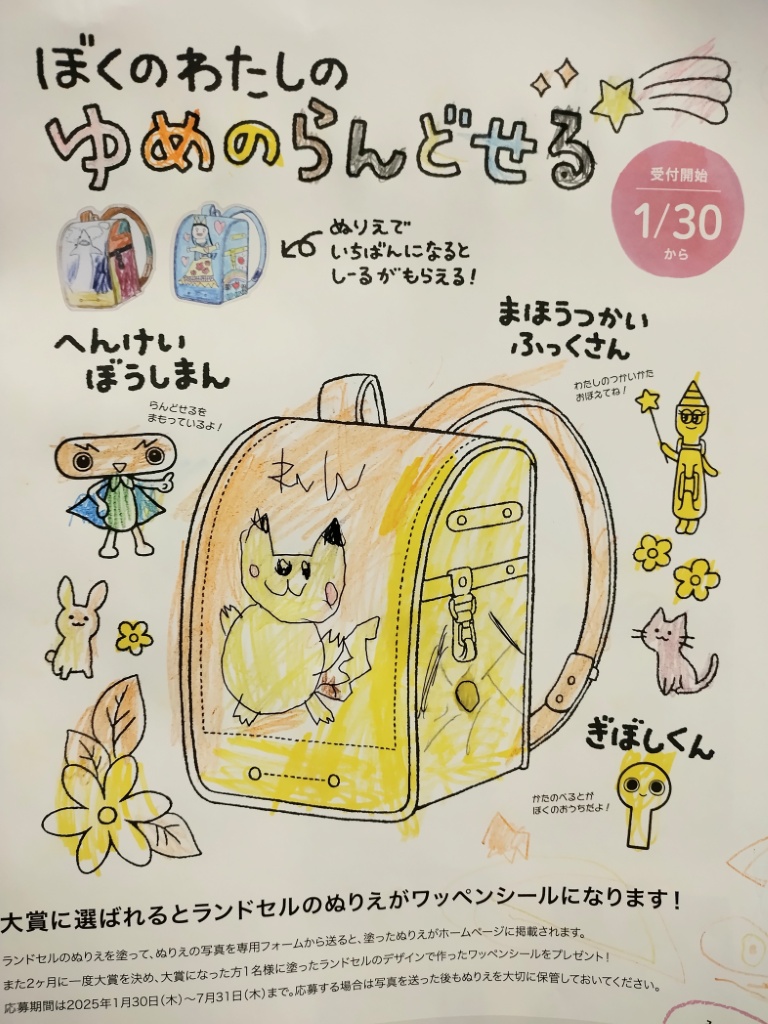 ぼくのわたしの
ゆめのらんどせる
受付開始
1/30
から
ぬりえで
いちばんになると
しーるがもらえる!
へんけい
ぼうしまん
らんどせるを
まもっているよ!
まほうつかい
ふっくさん
わたしのつかいかた
おぼえてね!
ぎぼしくん
かたのべるとが
ぼくのおうちだよ!
大賞に選ばれるとランドセルのぬりえがワッペンシールになります!
ランドセルのぬりえを塗って、ぬりえの写真を専用フォームから送ると、塗ったぬりえがホームページに掲載されます。
また2ヶ月に一度大賞を決め、大賞になった方1名様に塗ったランドセルのデザインで作ったワッペンシールをプレゼント!
応募期間は2025年1月30日(木)～7月31日(木)まで。応募する場合は写真を送った後もぬりえを大切に保管しておいてください。